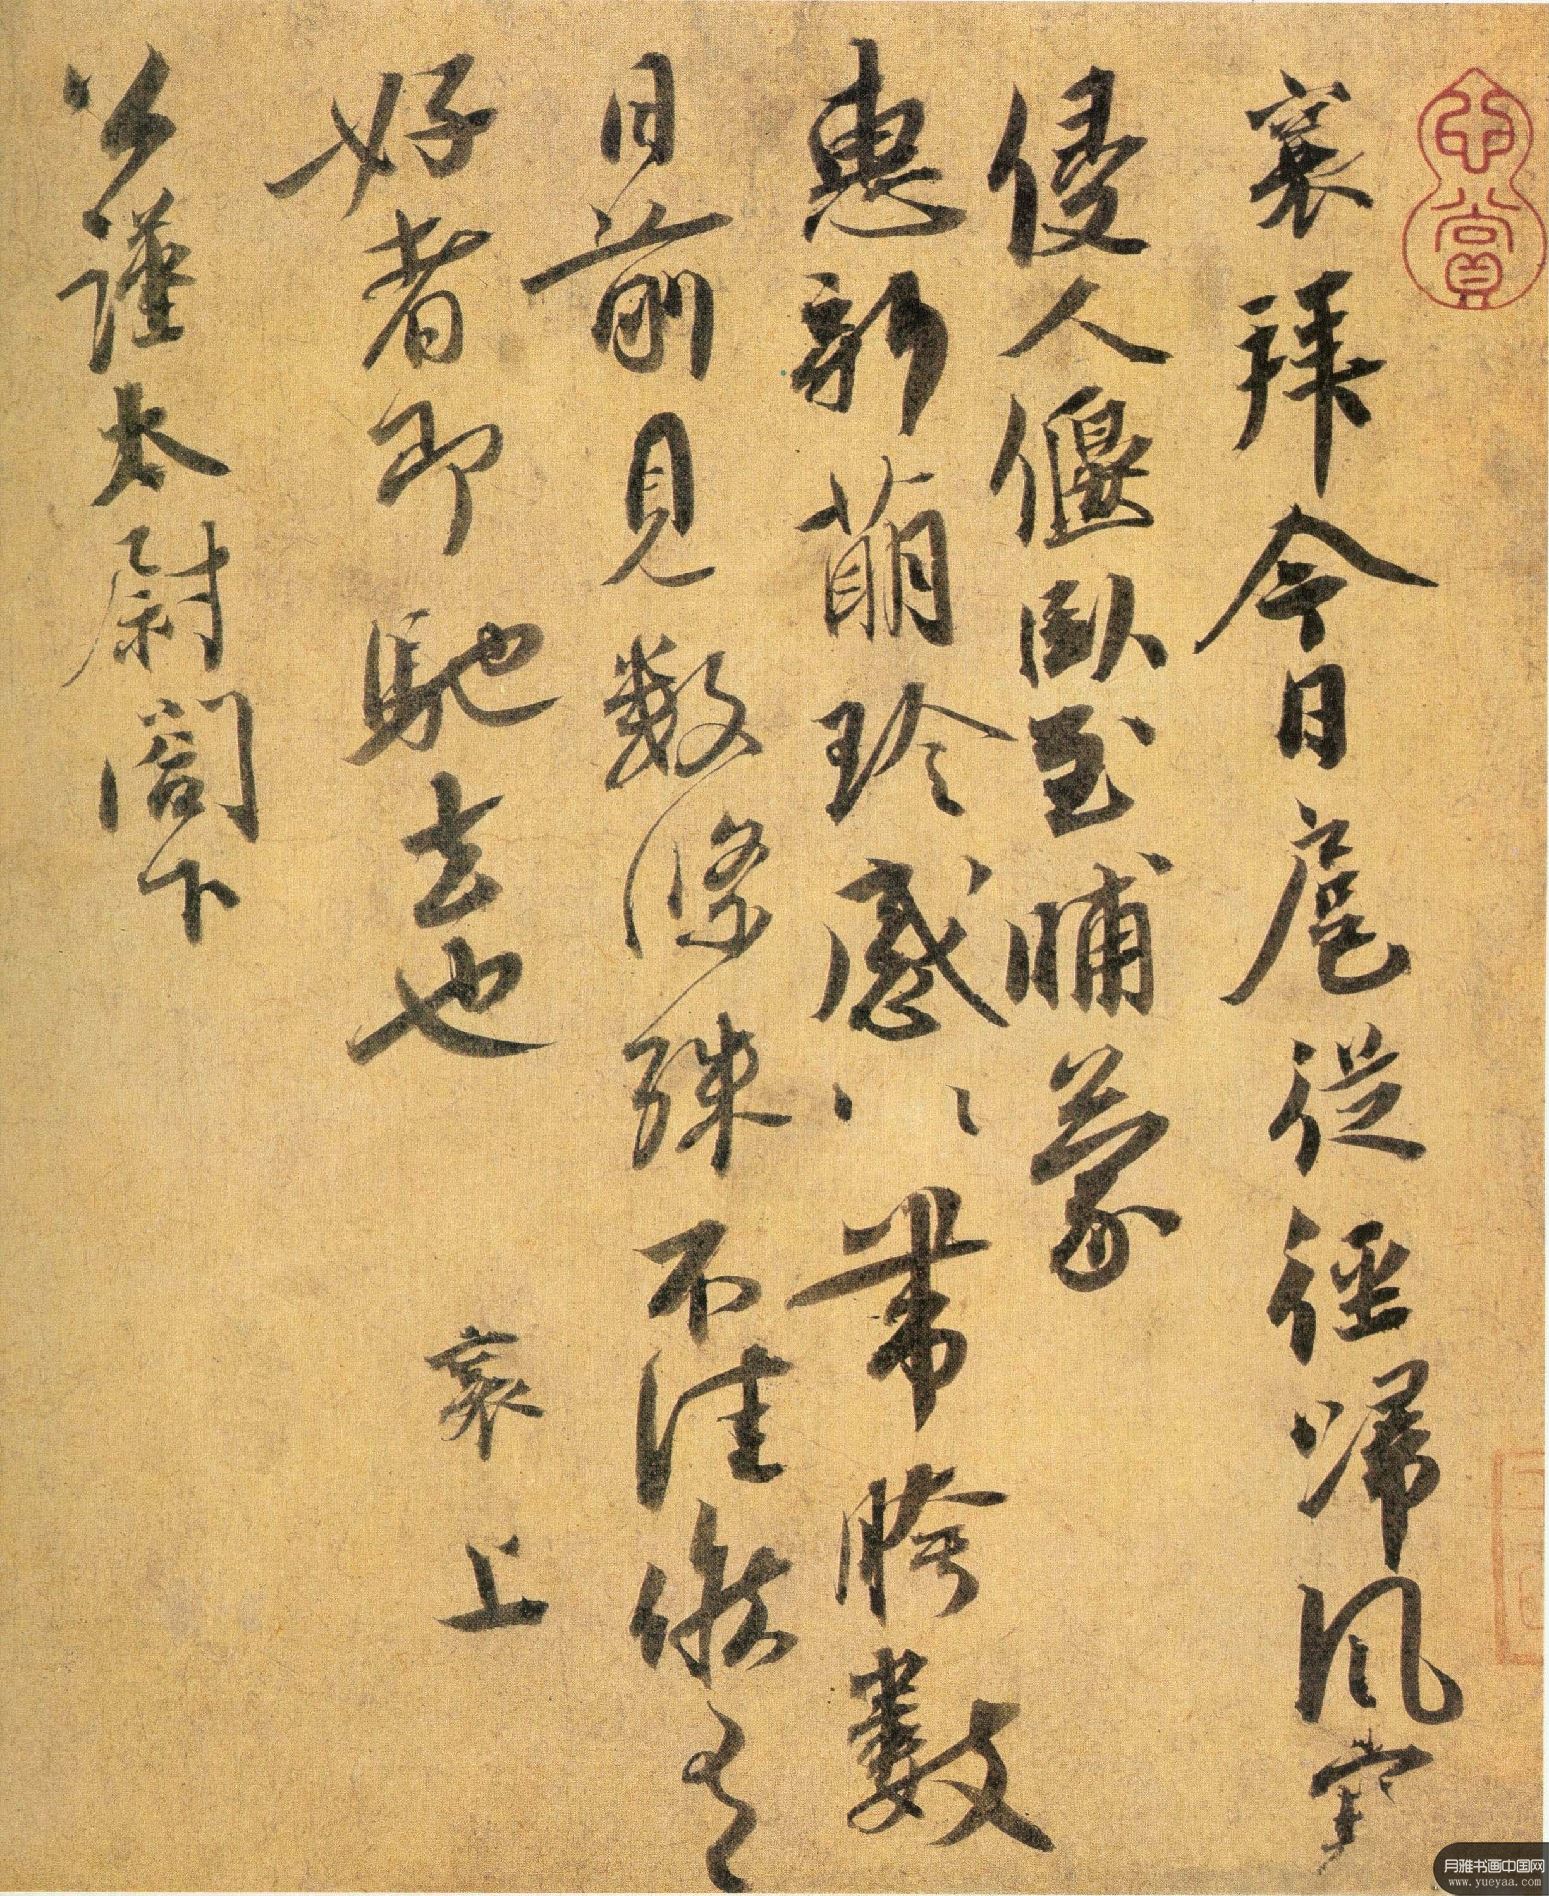 心賞
襄拜今日扈從徑歸風寒
侵人偃臥至晡蒙
惠新萌珍感〻帶胯數
日前見數條殊不佳候有
好者即馳去也
襄上
公謹太尉閣下
月雅书画中国网
www.yueyaa.com